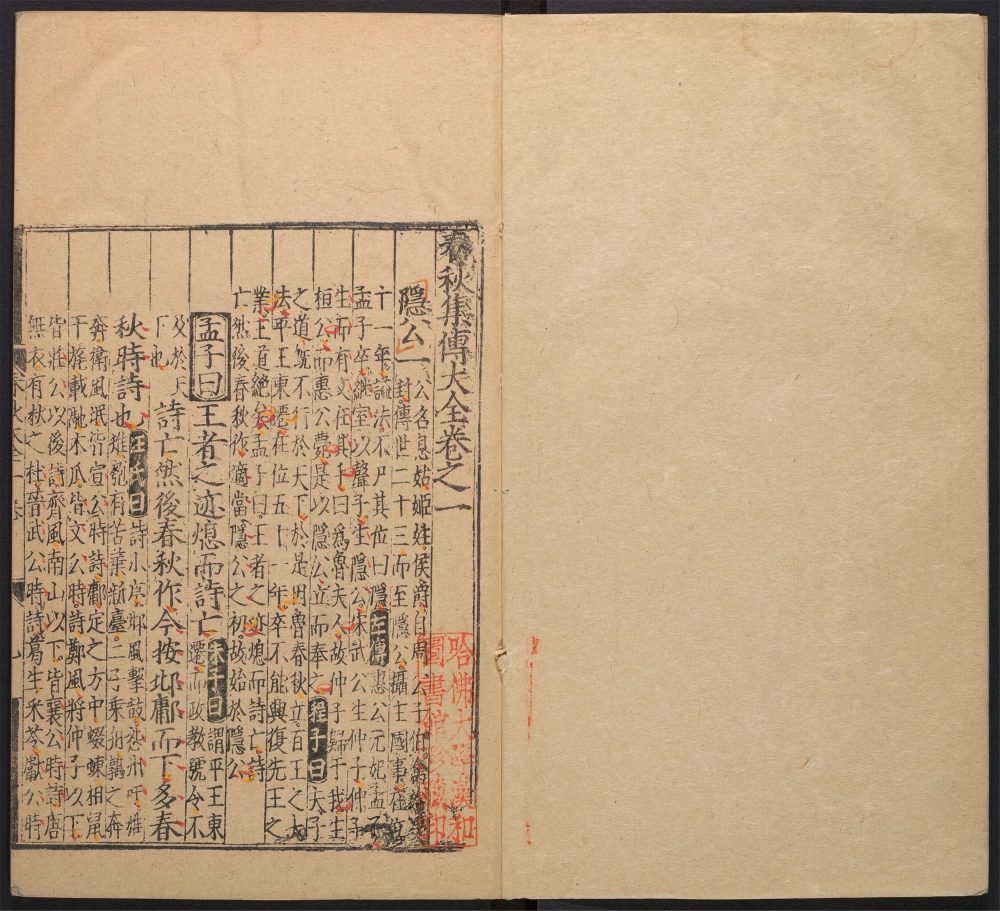 春秋集傳大全卷之一
隱公一
公名息姑姬姓侯爵自周公子伯禽始受
封傳世二十三而至隱公攝主國事在位
十一年謚法不尸其位曰隱左傳惠公元妃孟子
孟子卒繼室以聲子生隱公宋武公生仲子仲子
生而有文在其手曰爲魯夫人故仲子歸于我生
桓公而惠公薨是以隱公立而奉之程子曰夫子
之道既不行於天下於是因魯春秋立百王之大
法平王東遷在位五十一年卒不能興復先王之
業王道絶矣孟子曰王者之迹熄而詩亡詩
亡然後春秋作適當隱公之初故始於隱公
孟子曰王者之迹熄而詩亡
朱子曰謂平王東
遷而政教號令不
及於天
下也
詩亡然後春秋作今按邶鄘而下多春
秋時詩也
汪氏曰詩小序邶風擊鼓怨州吁雄
雉匏有苦葉新臺二子乘舟鶉之奔
奔衛風氓皆宣公時詩鄘定之方中蝃蝀相鼠
干旄載馳木瓜皆文公時詩鄭風將仲子以下
皆莊公以後詩齊風南山以下皆襄公時詩唐
無衣有杕之杜晉武公時詩葛生采苓獻公時
哈佛大學漢和
圖書館珍藏印